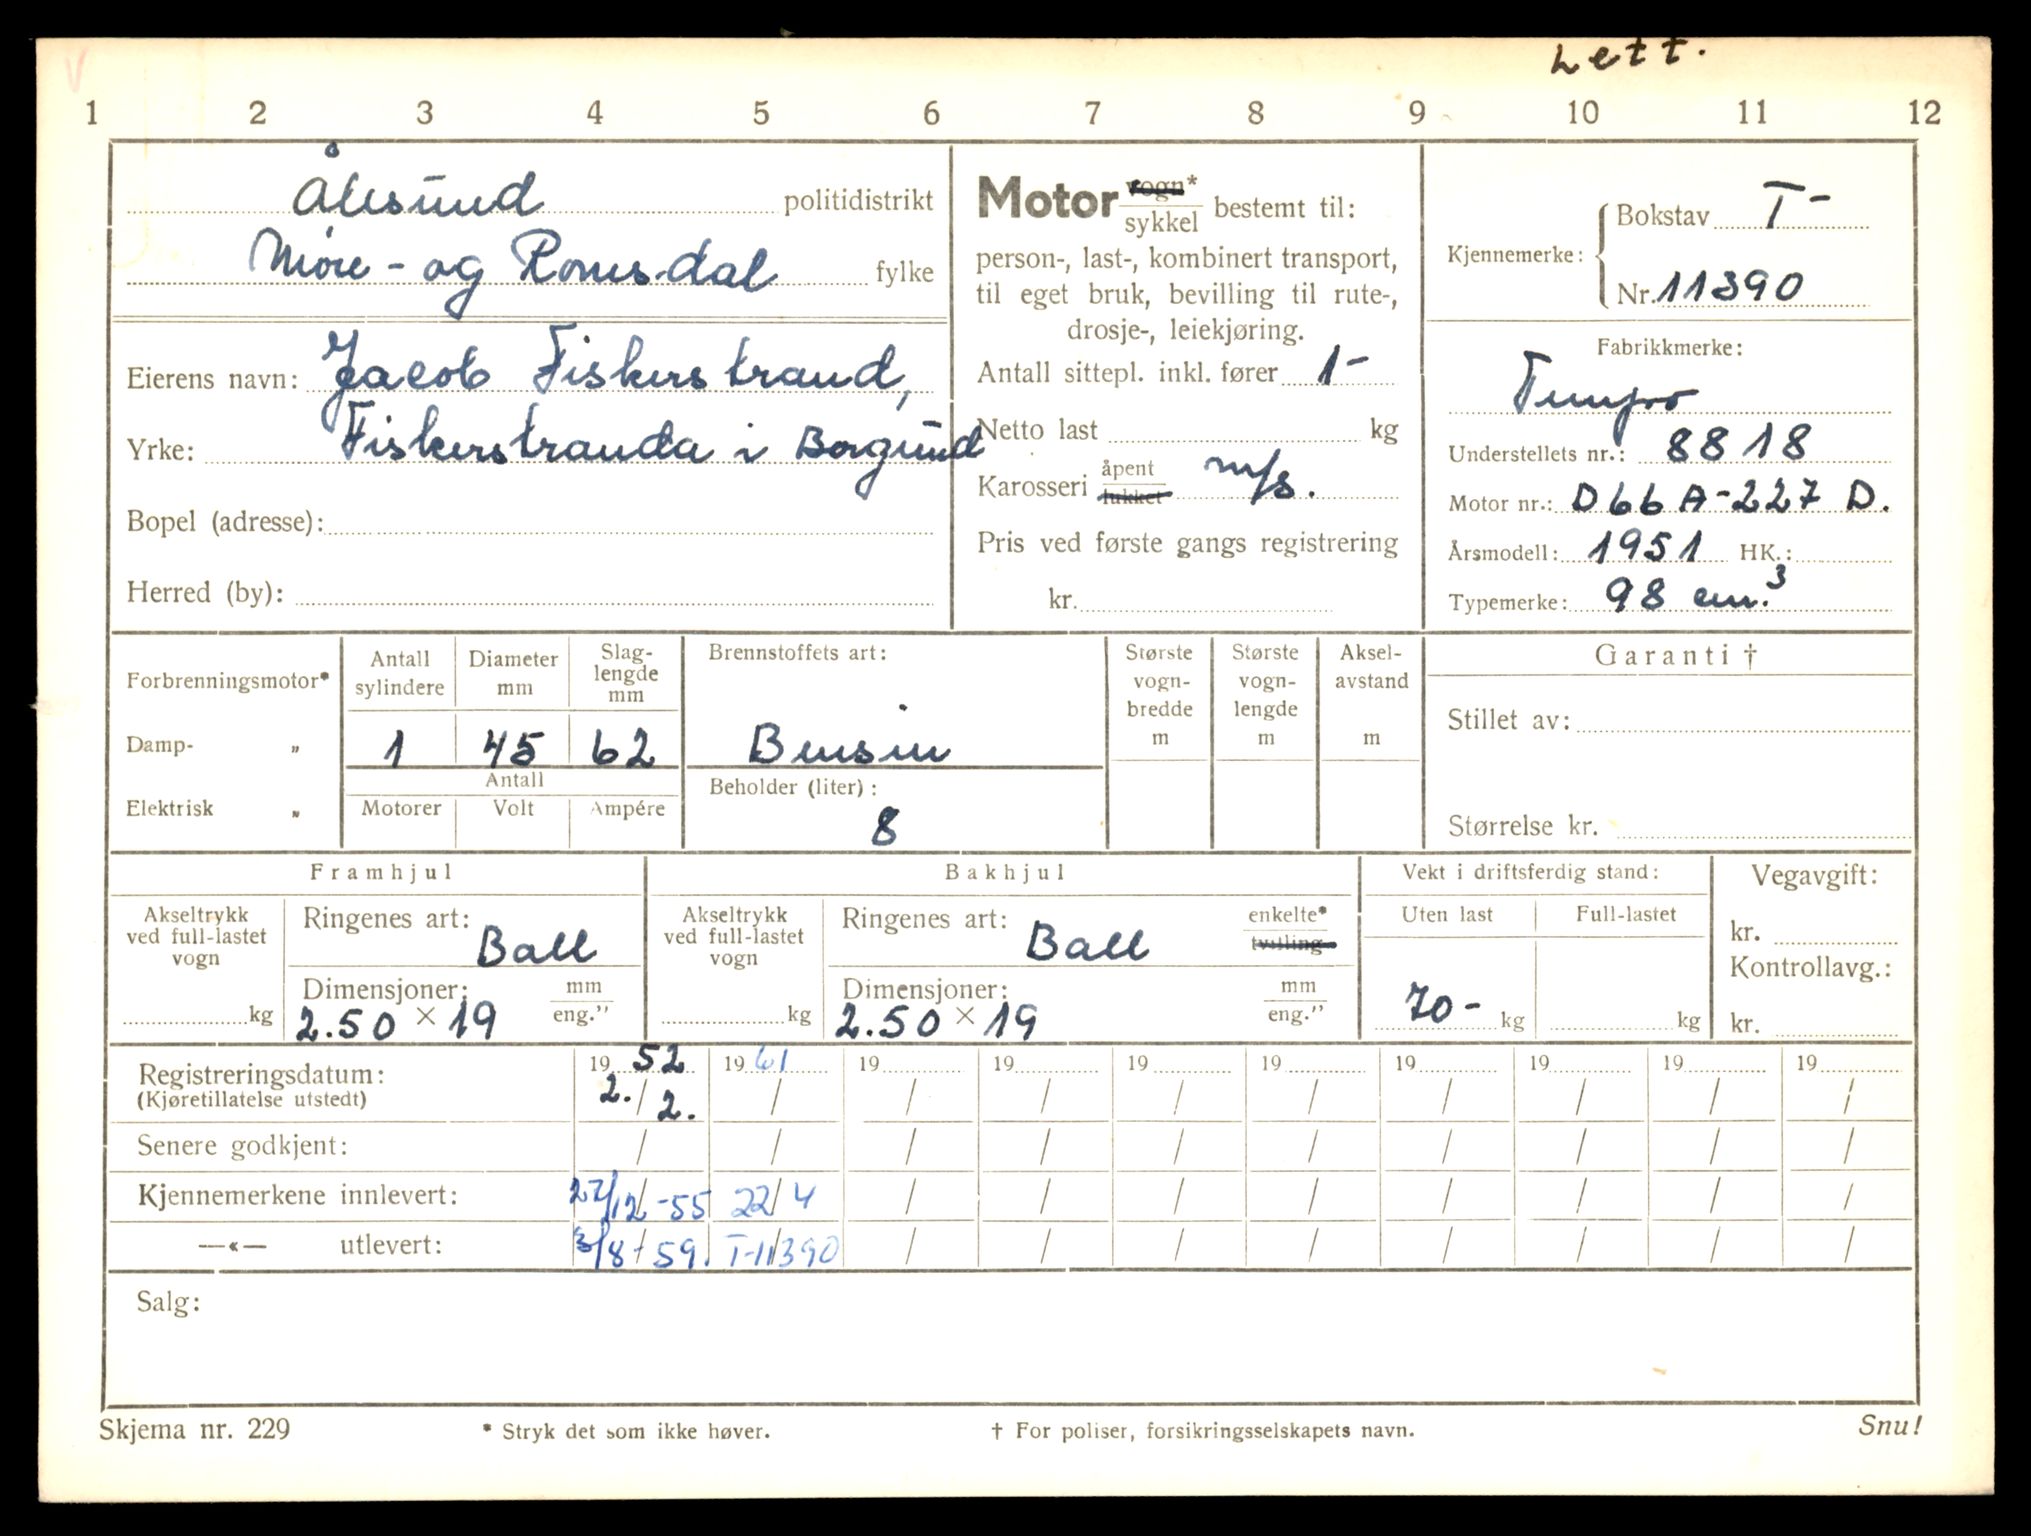 Lett.
1 2 3 4 5 6 7 8 9 10 11 12
Ålesund politidistrikt
Møre - og Romsdal fylke
Eierens navn: Jacob Fiskerstrand,
Yrke: Fiskerstranda i Borgund
Bopel (adresse):
Herred (by):
Motor vogn* / sykkel bestemt til:
person-, last-, kombinert transport,
til eget bruk, bevilling til rute-,
drosje-, leiekjøring.
Antall sittepl. inkl. fører 1-
Netto last kg
Karosseri åpent / lukket m/s.
Pris ved første gangs registrering
kr.
Kjennemerke: Bokstav T-
Nr. 11390
Fabrikkmerke:
Tempo
Understellets nr.: 8818
Motor nr.: D66A-227 D.
Årsmodell: 1951 HK.:
Typemerke: 98 cm.³
Forbrenningsmotor*
Damp- „
Elektrisk „
Antall sylindere
Diameter mm
Slag-lengde mm
1 45 62
Antall
Motorer Volt Ampére
Brennstoffets art:
Bensin
Beholder (liter):
8
Største vogn-bredde m
Største vogn-lengde m
Aksel-avstand m
Garanti †
Stillet av:
Størrelse kr.
Framhjul
Akseltrykk ved full-lastet vogn
kg
Ringenes art: Ball
Dimensjoner: mm
2.50 × 19 eng."
Bakhjul
Akseltrykk ved full-lastet vogn
kg
Ringenes art: Ball enkelte* / tvilling
Dimensjoner: mm
2.50 × 19 eng."
Vekt i driftsferdig stand:
Uten last Full-lastet
70- kg kg
Vegavgift:
kr.
Kontrollavg.:
kr.
Registreringsdatum: 19 52 19 61 19 19 19 19 19 19 19 19
(Kjøretillatelse utstedt) 2./2. / / / / / / / / /
Senere godkjent: / / / / / / / / / /
Kjennemerkene innlevert: 27/12 -55 22/4 / / / / / / / /
—«— utlevert: 3/8 - 59. T-11390 / / / / / / / /
Salg:
Skjema nr. 229 * Stryk det som ikke høver. † For poliser, forsikringsselskapets navn. Snu!